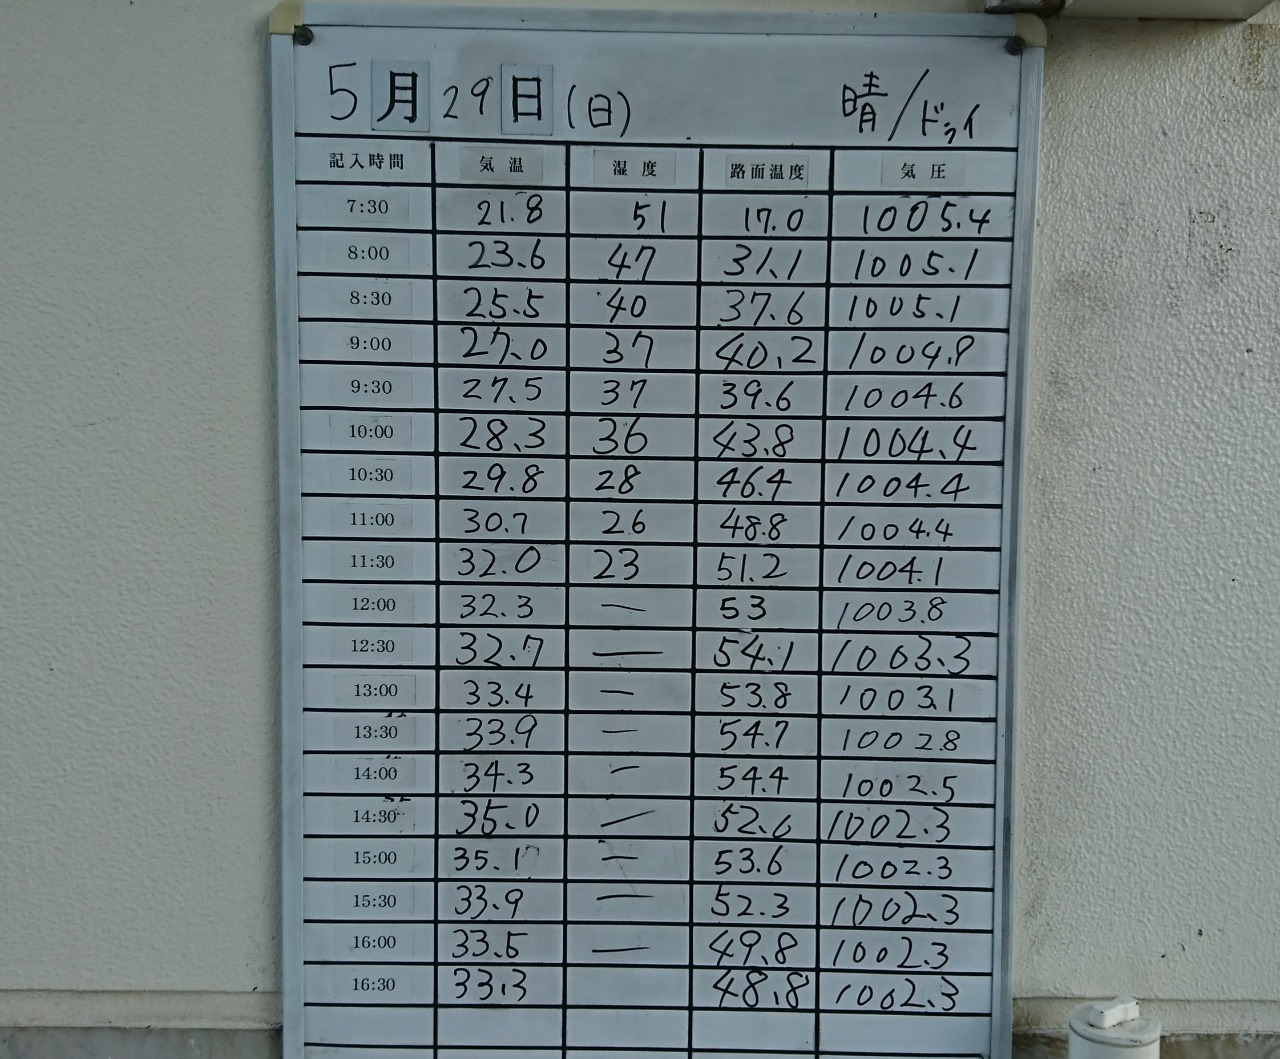 5月29日(日) 晴/ドライ
記入時間 気温 湿度 路面温度 気圧
7:30 21.8 51 17.0 1005.4
8:00 23.6 47 31.1 1005.1
8:30 25.5 40 37.6 1005.1
9:00 27.0 37 40.2 1004.9
9:30 27.5 37 39.6 1004.6
10:00 28.3 36 43.8 1004.4
10:30 29.8 28 46.4 1004.4
11:00 30.7 26 48.8 1004.4
11:30 32.0 23 51.2 1004.1
12:00 32.3 — 53 1003.8
12:30 32.7 — 54.1 1003.3
13:00 33.4 — 53.8 1003.1
13:30 33.9 — 54.7 1002.8
14:00 34.3 — 54.4 1002.5
14:30 35.0 — 52.6 1002.3
15:00 35.1 — 53.6 1002.3
15:30 33.9 — 52.3 1002.3
16:00 33.5 — 49.8 1002.3
16:30 33.3 48.8 1002.3